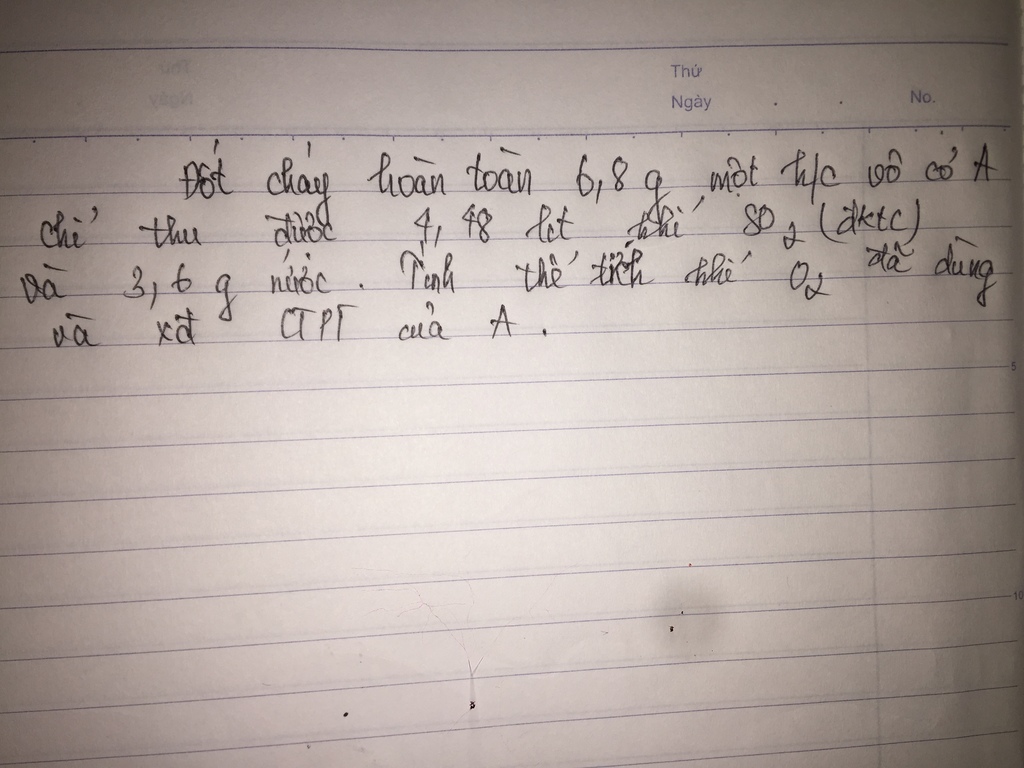 Thứ
Ngày
No.
Đốt cháy hoàn toàn 6,8 g một h/c vô cơ A
chỉ thu được 4,48 lít khí SO2 (đktc)
và 3,6 g nước. Tính thể tích khí O2 đã dùng
và xđ CTPT của A.
5
10